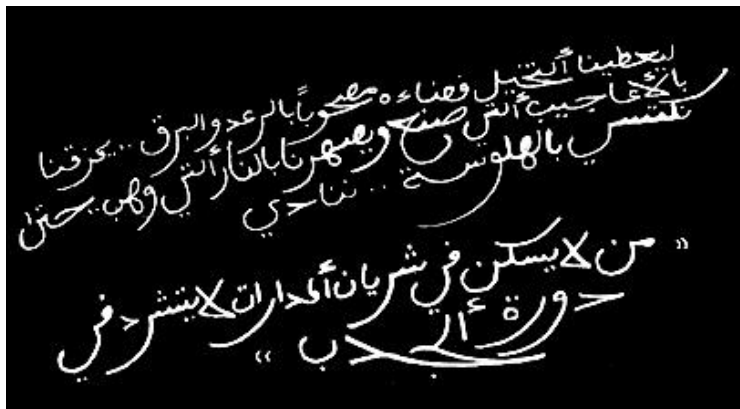 ليعطينا ألتخيل فضاءه مصحوباً بالرعد والبرق .. يحرقنا
بالأعاجيب ألتي صنع ويصهرنا بالنار ألتي وهب .. حتى
نكتسي بالهلوسة .. ننادي
" من لا يسكن في شريان ألمدارات لا يتشرد في
دورة ألجدب "